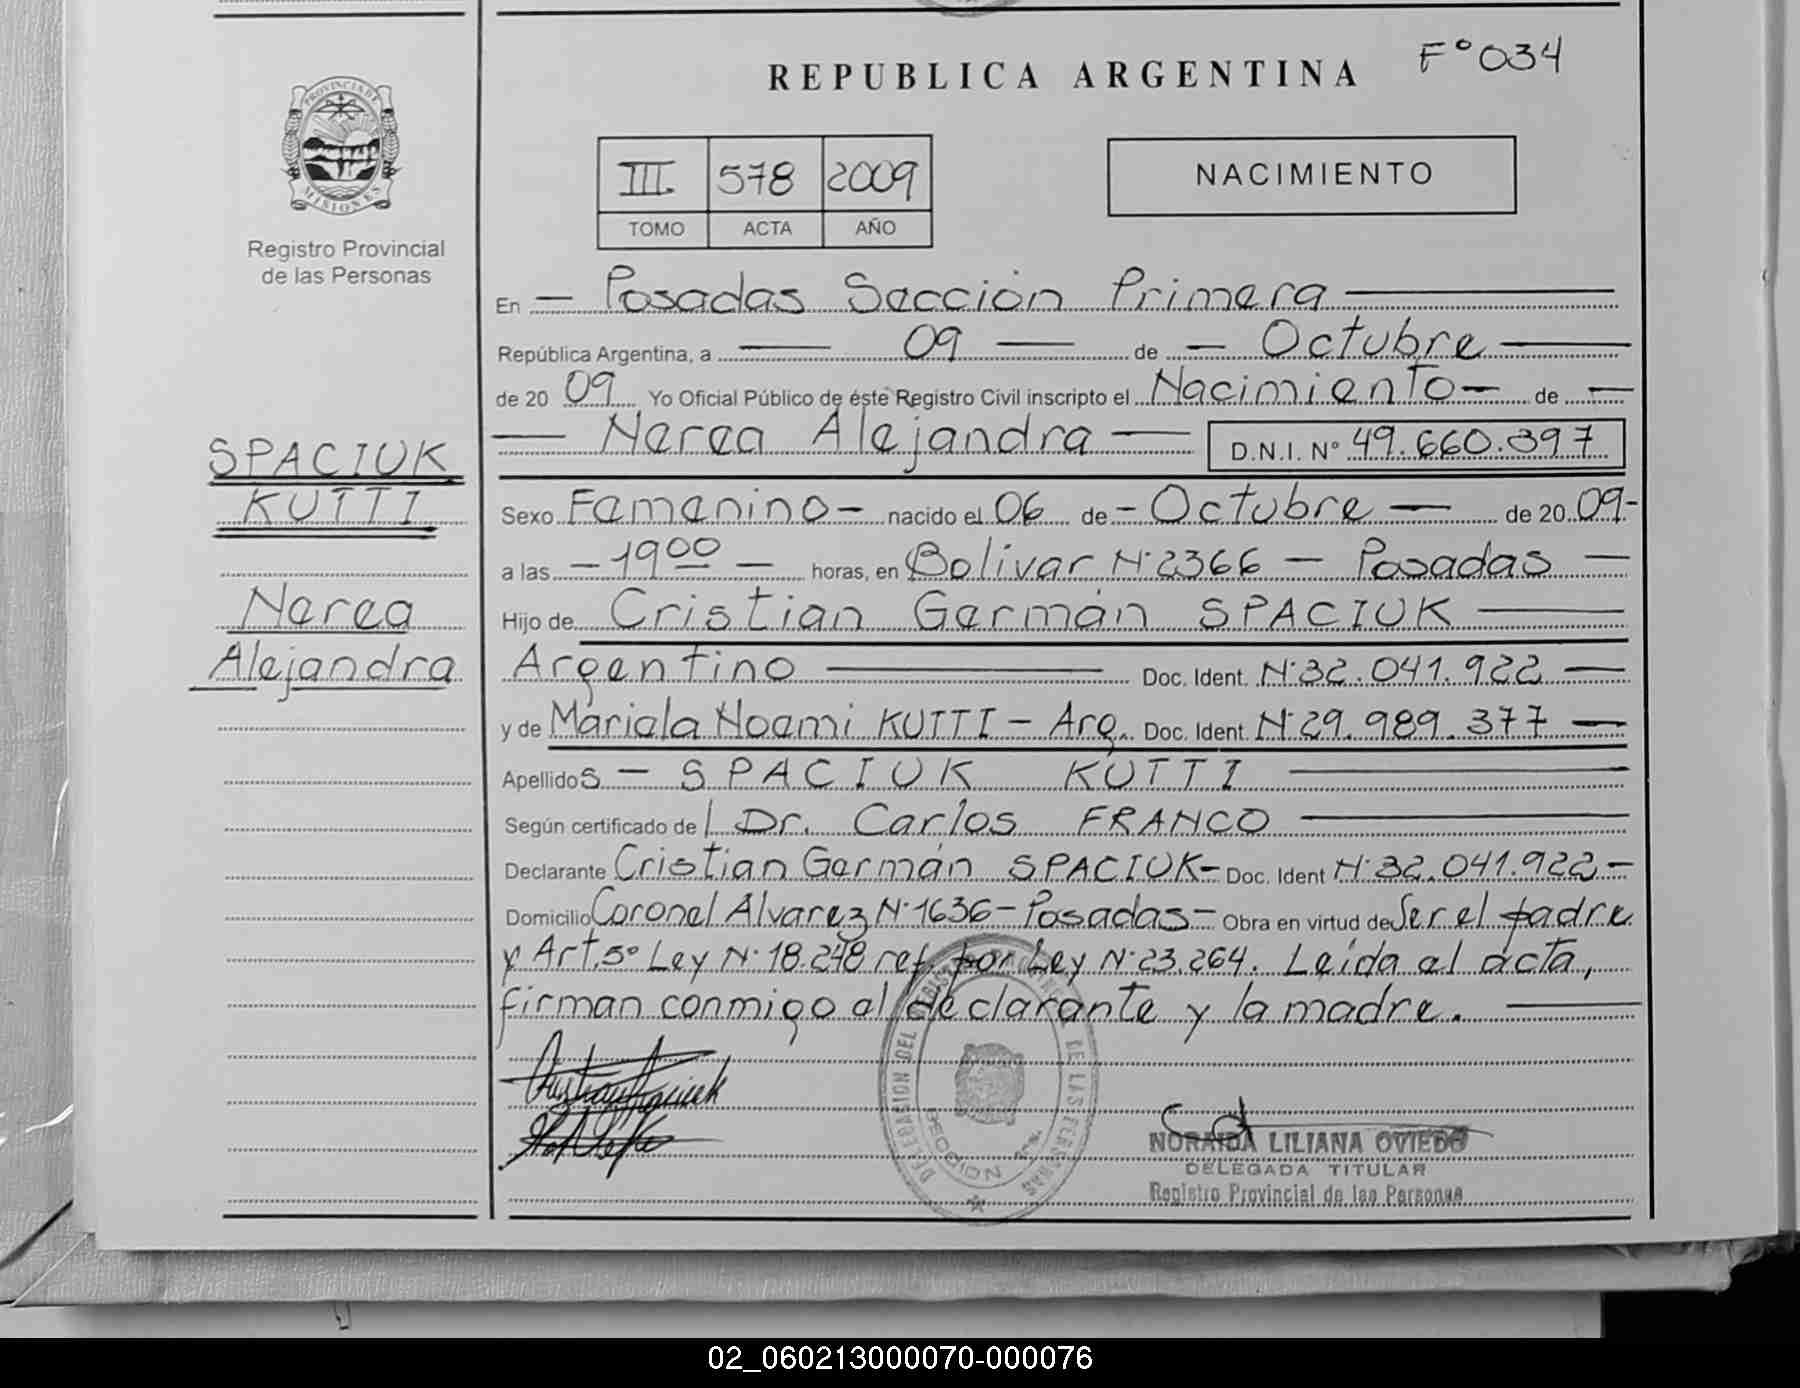 F° 034
REPUBLICA ARGENTINA
PROVINCIA DE
MISIONES
Registro Provincial
de las Personas
III. 578 2009
TOMO ACTA AÑO
NACIMIENTO
En — Posadas Sección Primera —
República Argentina, a — 09 — de — Octubre —
de 20 09 Yo Oficial Público de éste Registro Civil inscripto el Nacimiento — de —
— Nerea Alejandra — D.N.I. N° 49.660.397
SPACIUK
KUTTI
Nerea
Alejandra
Sexo Femenino — nacido el 06 de — Octubre — de 20 09 -
a las — 19 00 — horas, en Bolivar N° 2366 — Posadas —
Hijo de Cristian Germán SPACIUK —
Argentino — Doc. Ident. N° 32.041.922 —
y de Mariela Noemi KUTTI — Arg. Doc. Ident. N° 29.989.377 —
Apellidos — SPACIUK KUTTI —
Según certificado de l Dr. Carlos FRANCO —
Declarante Cristian Germán SPACIUK - Doc. Ident N° 32.041.922 —
Domicilio Coronel Alvarez N° 1636 — Posadas — Obra en virtud de Ser el padre
y Art. 5° Ley N° 18.248 ref. por Ley N° 23.264. Leída el acta,
firman conmigo el declarante y la madre. —
DELEGACION DEL REGISTRO PROVINCIAL DE LAS PERSONAS
SECCION 1ra.
NORAIDA LILIANA OVIEDO
DELEGADA TITULAR
Registro Provincial de las Personas
02_060213000070-000076